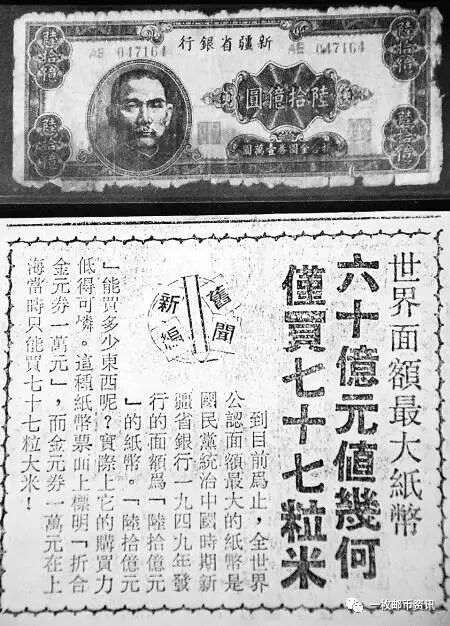 新疆省銀行
047164
047164
陸拾億
陸拾億
陸拾億圓
陸拾億
陸拾億
折合金圓券壹萬圓
世界面額最大紙幣
六十億元值幾何
僅買七十七粒米
舊聞
新編
到目前爲止，全世界
公認面額最大的紙幣是
國民黨統治中國時期新
疆省銀行一九四九年發
行的面額爲「陸拾億元
」的紙幣。「陸拾億元
」能買多少東西呢？實際上它的購買力
低得可憐。這種紙幣票面上標明「折合
金元券一萬元」，而金元券一萬元在上
海當時只能買七十七粒大米！
一枚邮币资讯